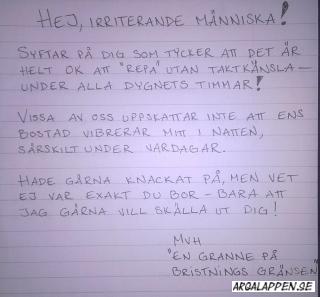 HEJ, IRRITERANDE MÄNNISKA!
SYFTAR PÅ DIG SOM TYCKER ATT DET ÄR
HELT OK ATT "REPA" UTAN TAKTKÄNSLA –
UNDER ALLA DYGNETS TIMMAR!
VISSA AV OSS UPPSKATTAR INTE ATT ENS
BOSTAD VIBRERAR MITT I NATTEN,
SÄRSKILT UNDER VARDAGAR.
HADE GÄRNA KNACKAT PÅ, MEN VET
EJ VAR EXAKT DU BOR – BARA ATT
JAG GÄRNA VILL SKÄLLA UT DIG!
MVH
"EN GRANNE PÅ
BRISTNINGS GRÄNSEN"
ARGALAPPEN.SE